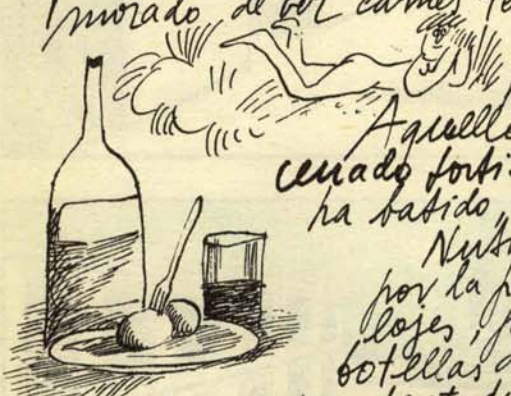 morado, de ver carnes te
Aquello
cenado forti
ha batido,
Nut
por la p
lojes, f
botellas d